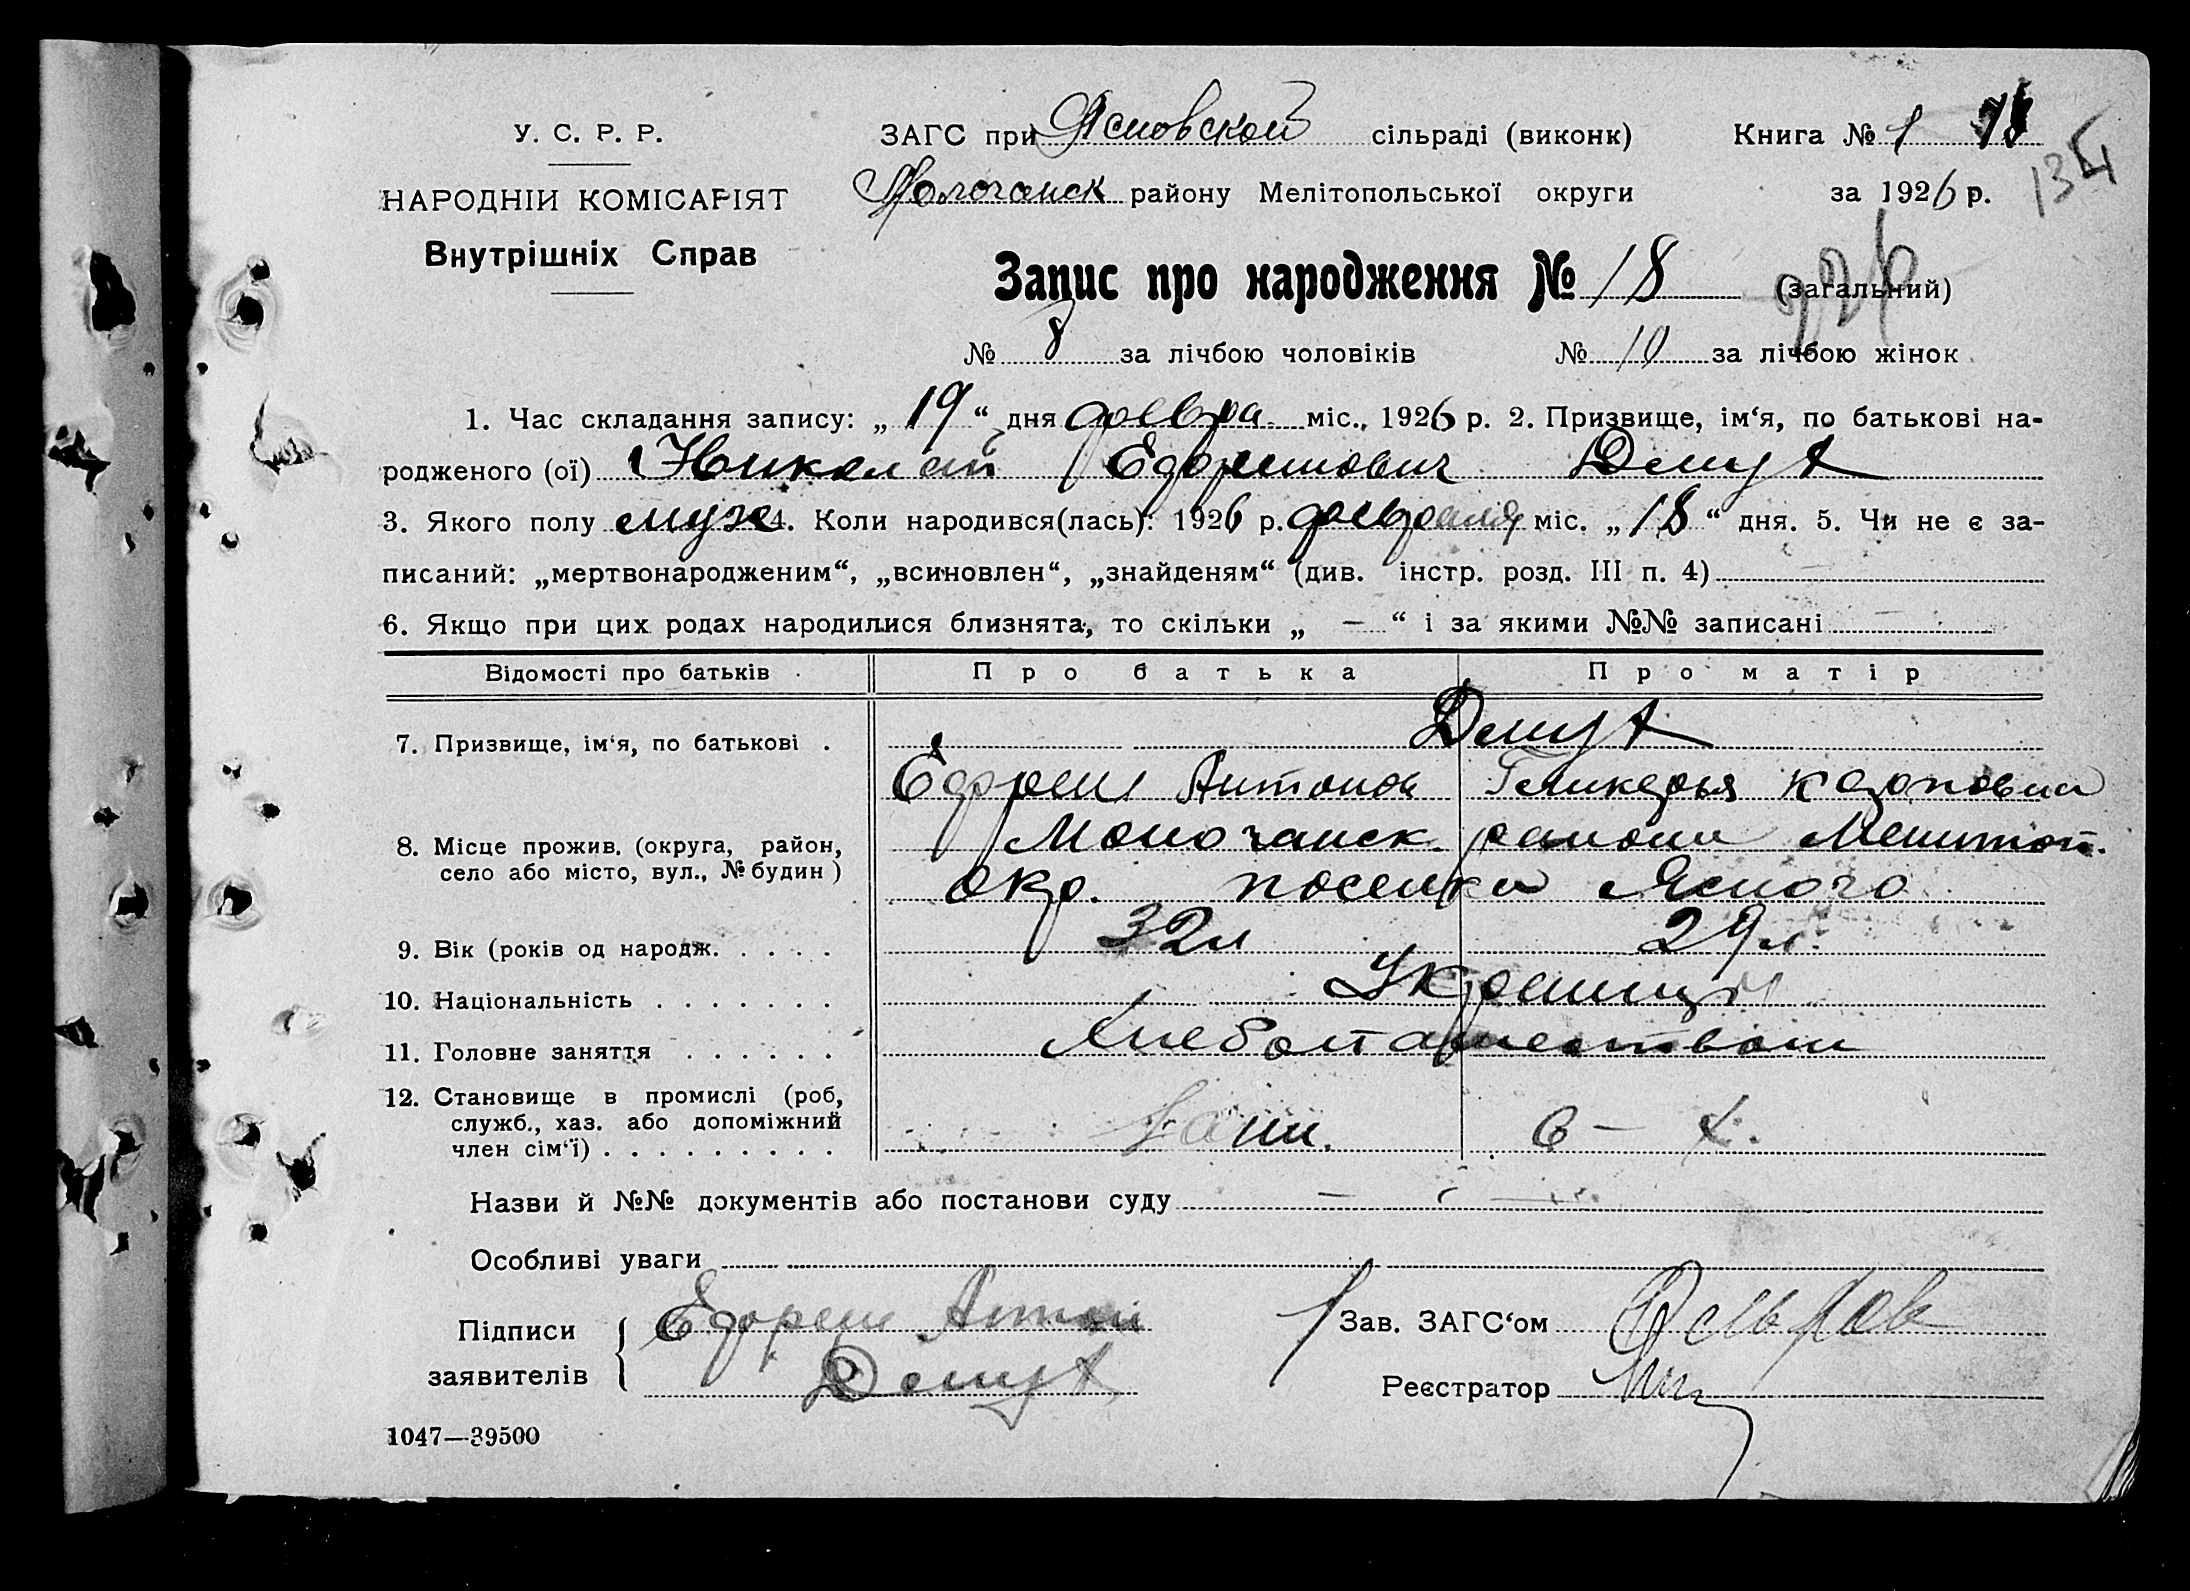 У. С. Р. Р.
НАРОДНІЙ КОМІСАРІЯТ
Внутрішніх Справ
ЗАГС при Ясновской сільраді (виконк) Книга № 1 18
134
Молочанск району Мелітопольської округи за 1926 р.
Запис про народження № 18 (загальний)
226
№ 8 за лічбою чоловіків № 10 за лічбою жінок
1. Час складання запису: „ 19 “ дня февра міс., 1926 р. 2. Призвище, ім‘я, по батькові на-
родженого (ої) Николай Ефремович Дмут
3. Якого полу муж 4. Коли народився(лась): 1926 р. февраля міс. „ 18 “ дня. 5. Чи не є за-
писаний: „мертвонародженим“, „всиновлен“, „знайденям“ (див. інстр. розд. III п. 4)
6. Якщо при цих родах народилися близнята, то скільки „ — “ і за якими №№ записані —
Відомості про батьків Про батька Про матір
7. Призвище, ім‘я, по батькові . Дмут
Ефрем Антонов Гликерья Карповна
8. Місце прожив. (округа, район, Молочанск. района Мелитоп.
село або місто, вул., № будин) окр. поселка Ясного
9. Вік (років од народж. . . . . 32 л 29 л.
10. Національність . . . . . . . Украинцы
11. Головне заняття . . . . . . Хлебопашеством
12. Становище в промислі (роб,
служб., хаз. або допоміжний
член сім‘ї) . . . . . . . . .
Назви й №№ документів або постанови суду — —
Особливі уваги
Підписи Ефрем Антон
заявителів Дмут
Зав. ЗАГС‘ом
Реєстратор
1047—39500